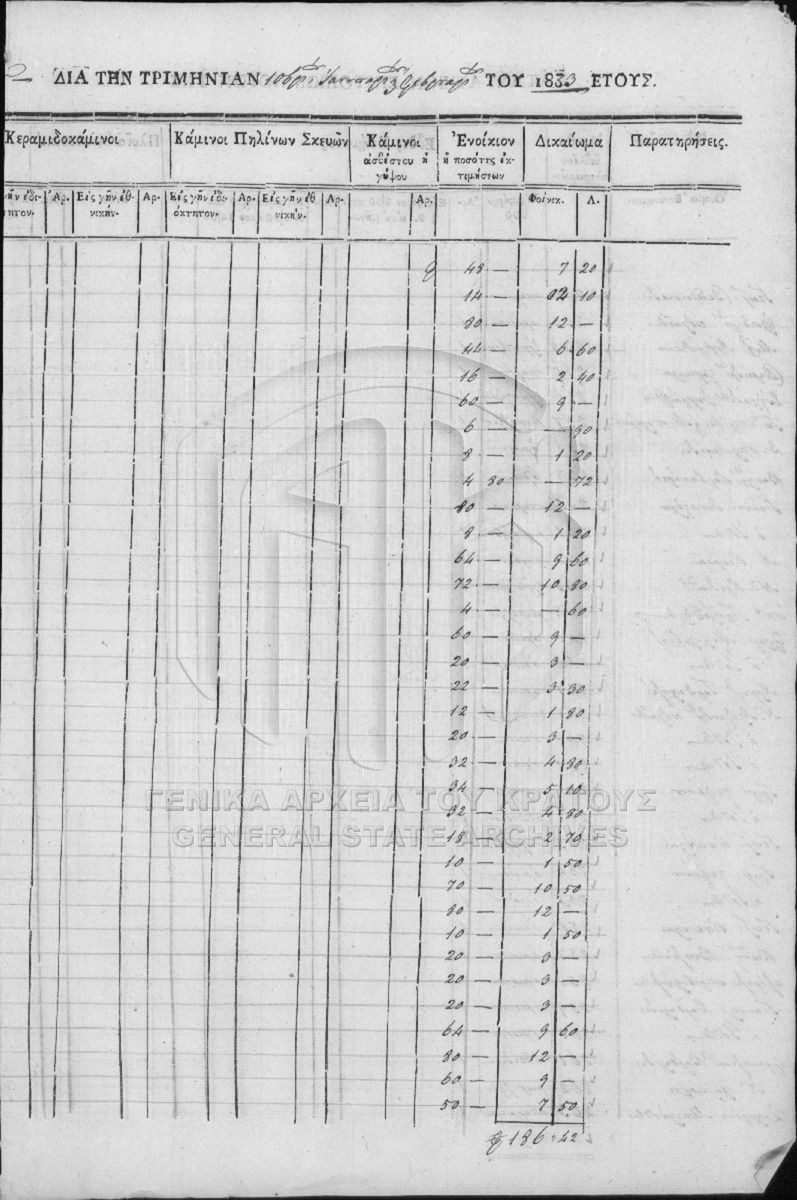 ΔΙΑ ΤΗΝ ΤΡΙΜΗΝΙΑΝ 10βρι Ἰαννουαρι Φεβρουαρι ΤΟΥ 1833 ΕΤΟΥΣ.
Κεραμιδοκάμινοι Κάμινοι Πηλίνων Σκευῶν Κάμινοι ἀσβέστου ἢ γύψου Ἐνοίκιον ἢ ποσότης ἐκτιμήσεων Δικαίωμα Παρατηρήσεις.
Ἀρ. Εἰς γῆν ἐθνικήν. Ἀρ. Εἰς γῆν ἰδιόκτητον. Ἀρ. Εἰς γῆν ἐθνικήν. Ἀρ. Ἀρ. Φοίνικ. Λ.
48 — 7 20
14 — 2 10
80 — 12 —
44 — 6 60
16 — 2 40
60 — 9 —
6 — 90
8 — 1 20
4 80 — 72
80 — 12 —
8 — 1 20
64 — 9 60
72 — 10 80
4 — — 60
60 — 9 —
20 — 3 —
22 — 3 30
12 — 1 80
20 — 3 —
32 — 4 80
34 — 5 10
32 — 4 80
18 — 2 70
10 — 1 50
70 — 10 50
80 — 12 —
10 — 1 50
20 — 3 —
20 — 3 —
20 — 3 —
64 — 9 60
80 — 12 —
60 — 9 —
50 — 7 50
186,42
ΓΕΝΙΚΑ ΑΡΧΕΙΑ ΤΟΥ ΚΡΑΤΟΥΣ
GENERAL STATE ARCHIVES